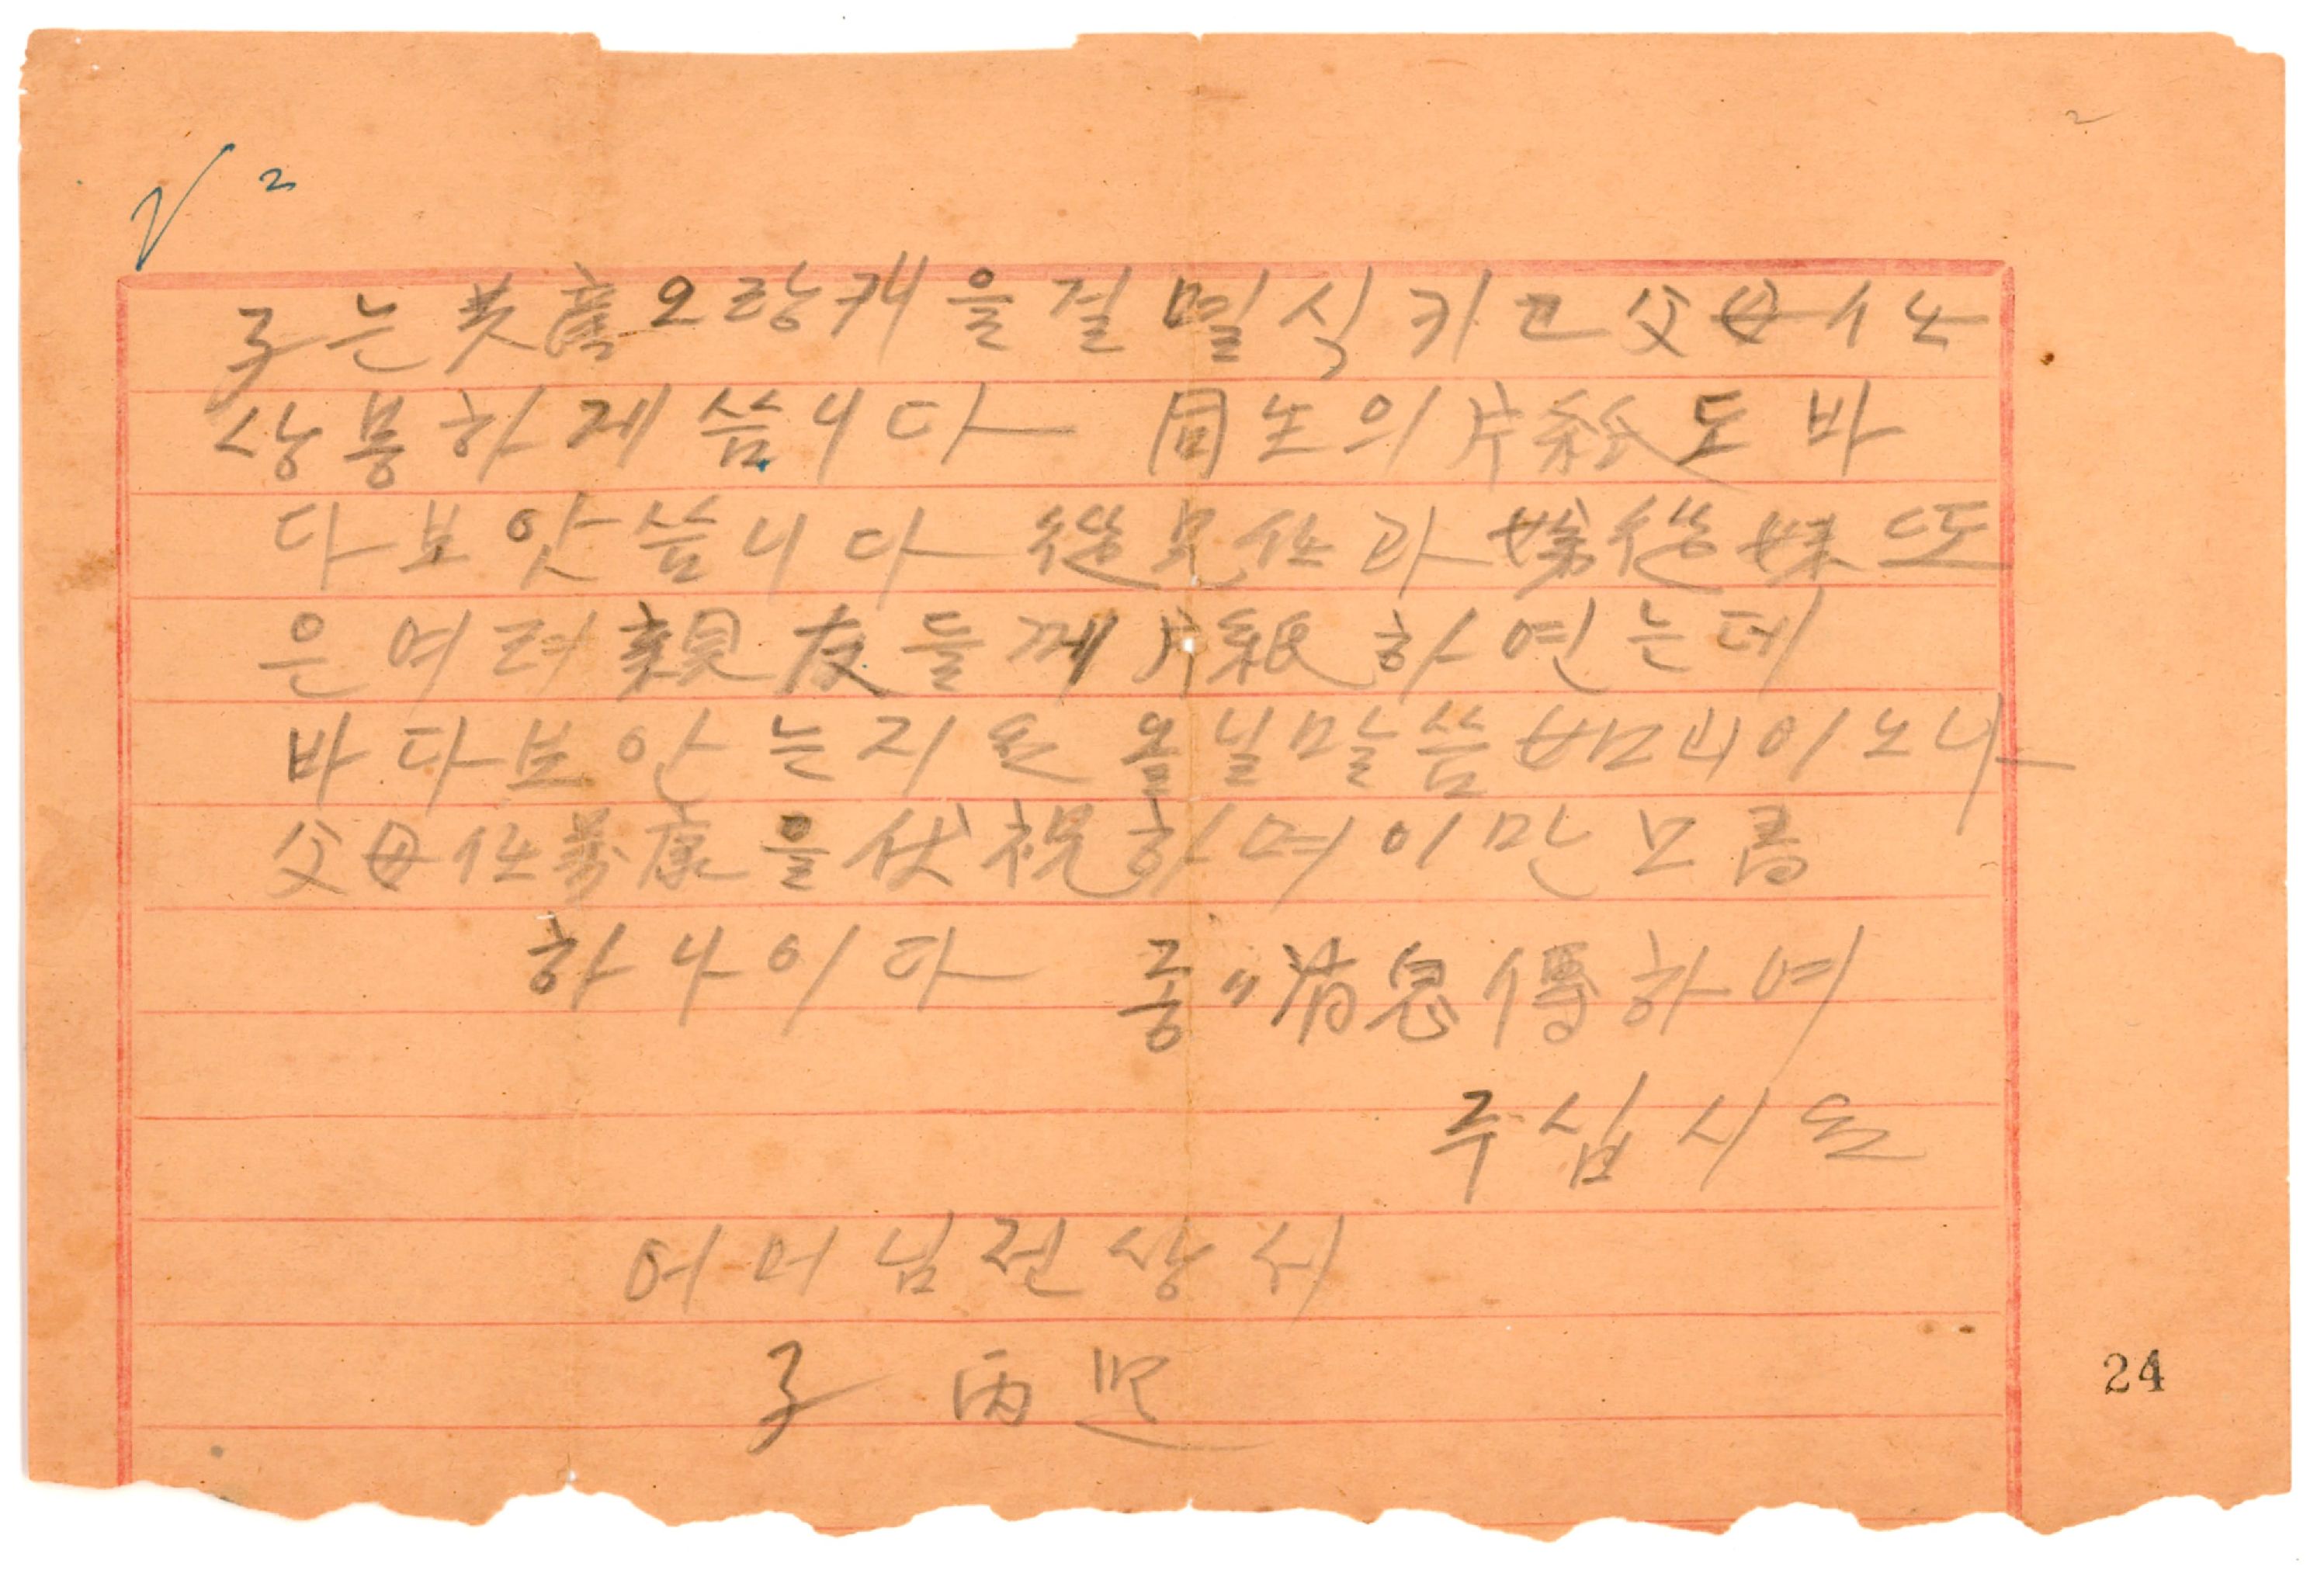 2
2
子는 共産 오랑캐을 결멸식키고 父母任
상봉하게씀니다 同生의 片紙도 바
다보앗씀니다 從兄任과 從妹 또
은 여러 親友들께 片紙하연는데
바다보안는지요 올닐말씀 이오니
父母任 康을 伏祝하며 이만
하나이다 종〃 消息 傳하여
주십시요
어머님전상서
子 丙
24